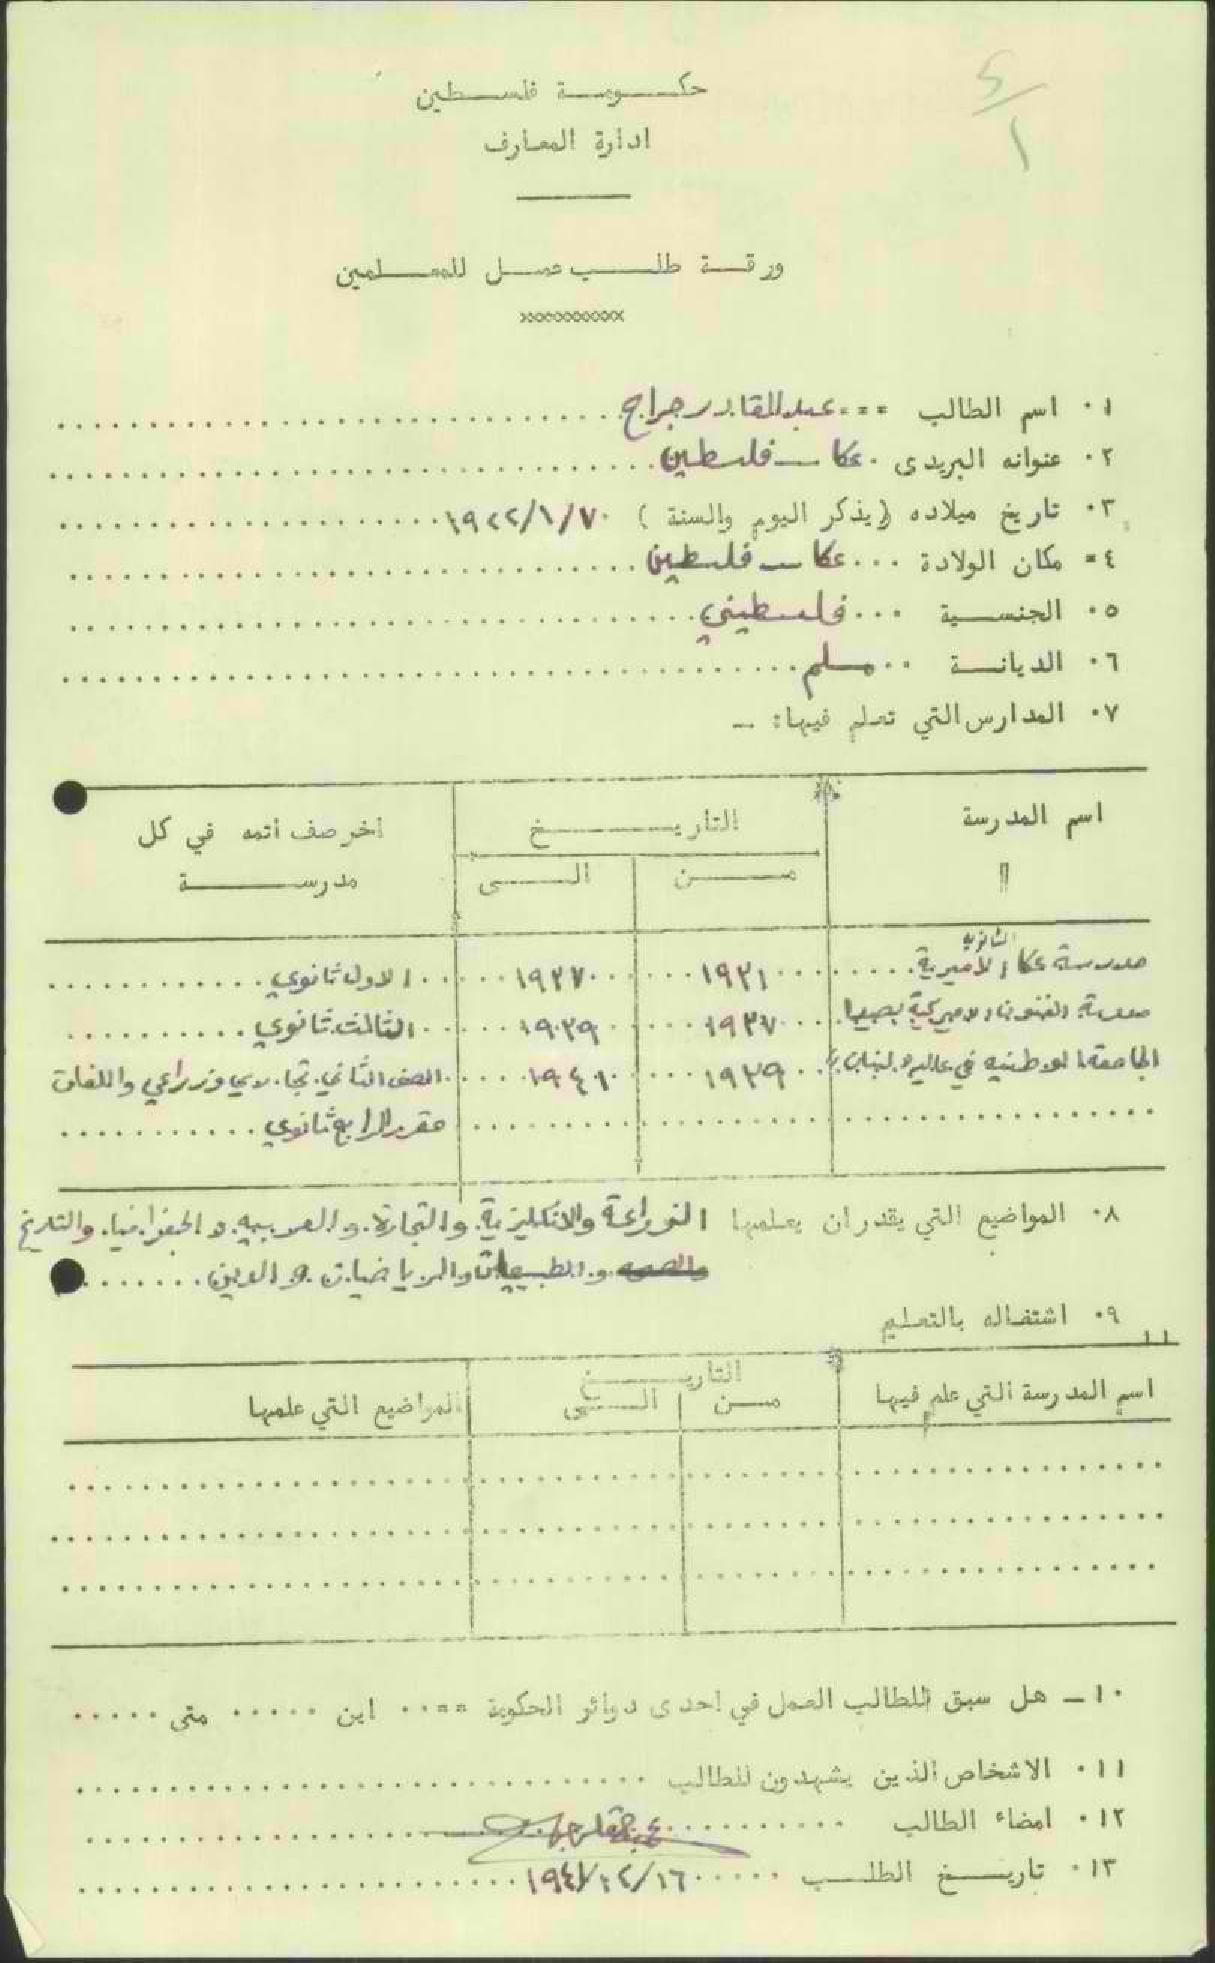 ٤/١
حكومة فلسطين
ادارة المعارف
ورقة طلب عمل للمعلمين
xxxxxxxxxxx
١٠ اسم الطالب ===٠ عبدالقادر جراح
٢٠ عنوانه البريدى ٠ عكا – فلسطين
٣٠ تاريخ ميلاده (يذكر اليوم والسنة) ١٩٢٢/١/٧
٤= مكان الولادة ... عكا – فلسطين
٥٠ الجنسية ... فلسطيني
٦٠ الديانة .. مسلم
٧٠ المدارس التي تعلم فيها: –
اسم المدرسة التاريخ اخر صف اتمه في كل
" من الى مدرسة
الثانوية
مدرسة عكا الأميرية ١٩٣١ ١٩٣٧ الاول ثانوي
مدرسة الفنون الاميركية بصيدا ١٩٣٧ ١٩٣٩ الثالث ثانوي
الجامعة الوطنيه في عاليه لبنان ١٩٣٩ ١٩٤١ الصف الثاني تجاري وزراعي واللغات
مقرر الرابع ثانوي
٨٠ المواضيع التي يقدر ان يعلمها الزراعة والانكليزية والتجارة والعربيه والجغرافيا والتاريخ
والطبيعيات والرياضيات والدين
٩٠ اشتغاله بالتعليم
اسم المدرسة التي علم فيها التاريخ المواضيع التي علمها
من الى
١٠– هل سبق للطالب العمل في احدى دوائر الحكومة ==٠٠ اين ..... متى .....
١١٠ الاشخاص الذين يشهدون للطالب
١٢٠ امضاء الطالب
١٣٠ تاريخ الطلب ١٩٤١/١٢/١٦